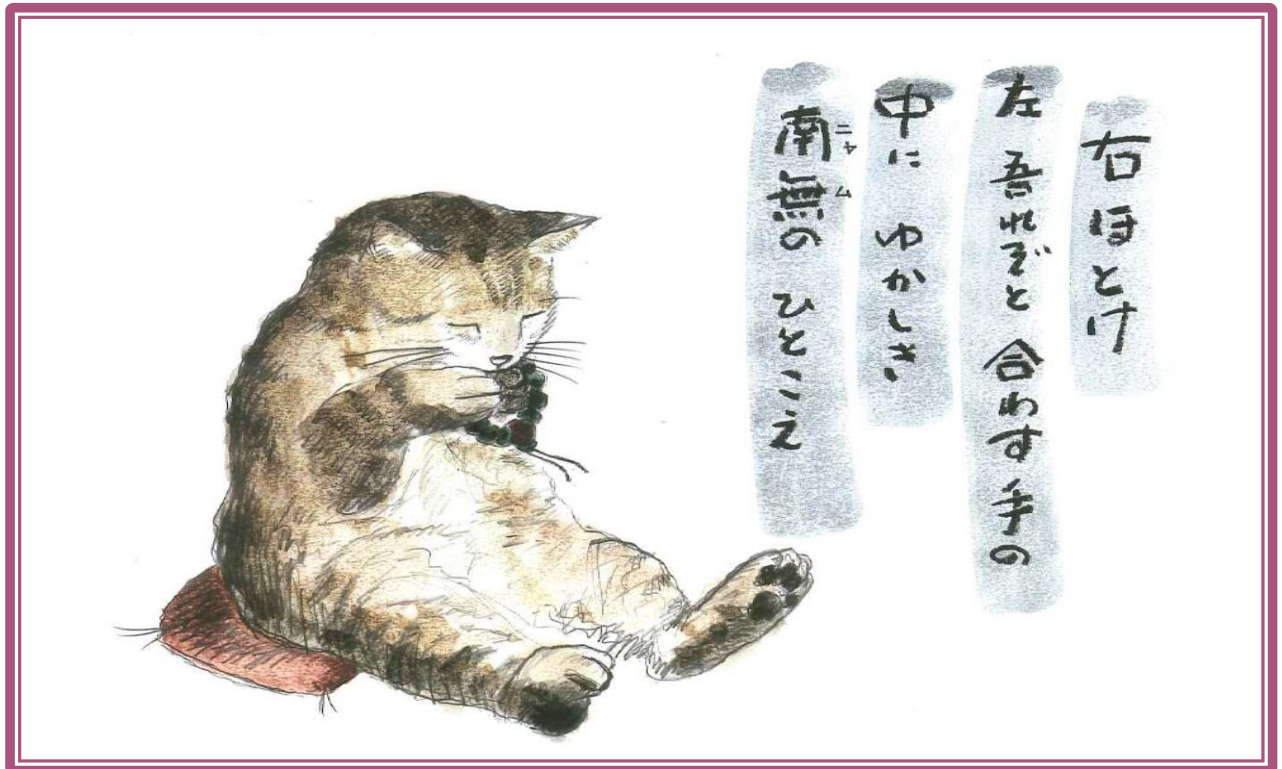 右 ほとけ
左 吾れぞと 合わす 手の
中に ゆかしき
南無の ひとこえ
ニャム